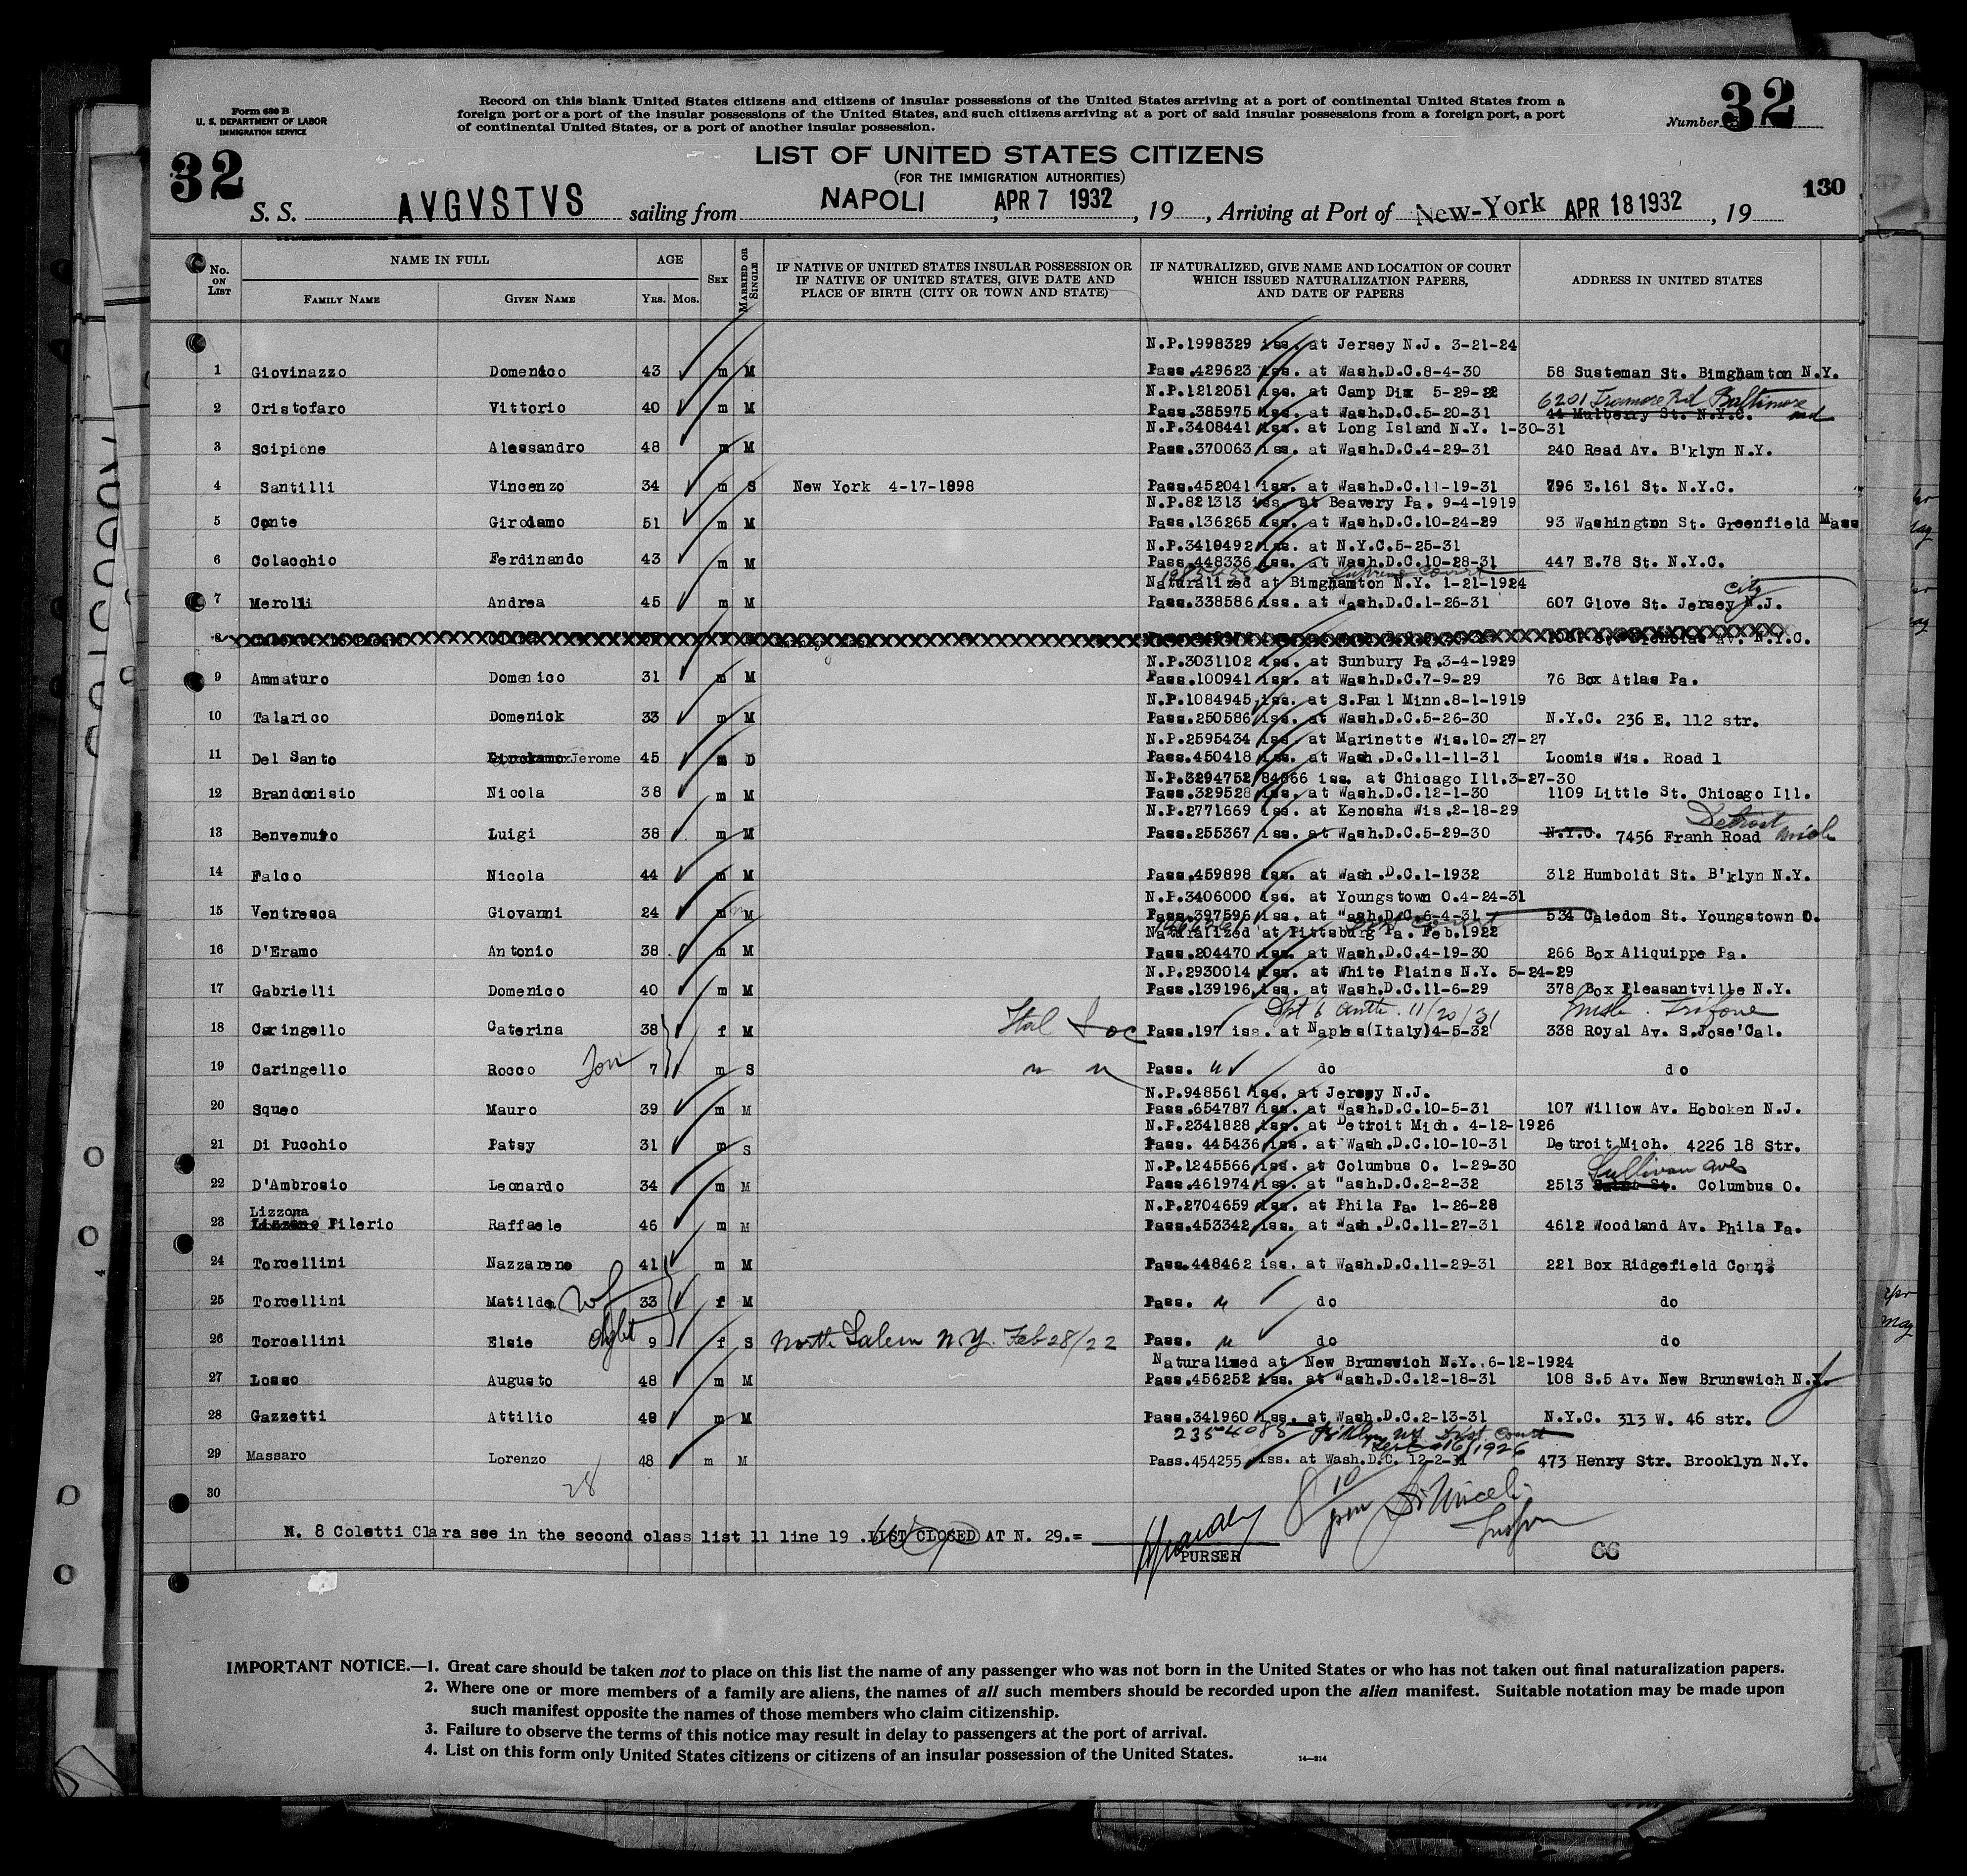 Form 630 B
U. S. DEPARTMENT OF LABOR
IMMIGRATION SERVICE
Record on this blank United States citizens and citizens of insular possessions of the United States arriving at a port of continental United States from a
foreign port or a port of the insular possessions of the United States, and such citizens arriving at a port of said insular possessions from a foreign port, a port
of continental United States, or a port of another insular possession.
Number 32
32
LIST OF UNITED STATES CITIZENS
(FOR THE IMMIGRATION AUTHORITIES)
130
S. S. AVGVSTVS sailing from NAPOLI, APR 7 1932, 19 , Arriving at Port of New-York APR 18 1932, 19
No. ON LIST
NAME IN FULL
FAMILY NAME
GIVEN NAME
AGE
YRS. MOS.
SEX
MARRIED OR SINGLE
IF NATIVE OF UNITED STATES INSULAR POSSESSION OR
IF NATIVE OF UNITED STATES, GIVE DATE AND
PLACE OF BIRTH (CITY OR TOWN AND STATE)
IF NATURALIZED, GIVE NAME AND LOCATION OF COURT
WHICH ISSUED NATURALIZATION PAPERS,
AND DATE OF PAPERS
ADDRESS IN UNITED STATES
N.P.1998329 iss. at Jersey N.J. 3-21-24
1 Giovinazzo Domenico 43 m M Pass.429623 iss. at Wash.D.C.8-4-30 58 Susteman St. Bimghamton N.Y.
N.P.1212051 iss. at Camp Dix 5-29-22 6201 Baltimore
2 Cristofaro Vittorio 40 m M Pass.385975 iss. at Wash.D.C.5-20-31 44 Mulberry St. N.Y.C. md
N.P.3408441 iss. at Long Island N.Y. 1-30-31
3 Scipione Alessandro 48 m M Pass.370063 iss. at Wash.D.C.4-29-31 240 Read Av. B'klyn N.Y.
4 Santilli Vincenzo 34 m S New York 4-17-1898 Pass.452041 iss. at Wash.D.C.11-19-31 796 E.161 St. N.Y.C.
N.P.821313 iss. at Beavery Pa. 9-4-1919
5 Conte Girodamo 51 m M Pass.136265 iss. at Wash.D.C.10-24-29 93 Washington St. Greenfield Mass
N.P.3410492 iss. at N.Y.C.5-25-31
6 Colacchio Ferdinando 43 m M Pass.448336 iss. at Wash.D.C.10-28-31 447 E.78 St. N.Y.C.
Supreme Court
Naturalized at Bimghamton N.Y. 1-21-1924 city
7 Merolli Andrea 45 m M Pass.338586 iss. at Wash.D.C.1-26-31 607 Glove St. Jersey N.J.
8 Av. N.Y.C.
N.P.3031102 iss. at Sunbury Pa.3-4-1929
9 Ammaturo Domenico 31 m M Pass.100941 iss. at Wash.D.C.7-9-29 76 Box Atlas Pa.
N.P.1084945 iss. at S.Paul Minn.8-1-1919
10 Talarico Domenick 33 m M Pass.250586 iss. at Wash.D.C.5-26-30 N.Y.C. 236 E. 112 str.
N.P.2595434 iss. at Marinette Wis.10-27-27
11 Del Santo Jerome 45 m D Pass.450418 iss. at Wash.D.C.11-11-31 Loomis Wis. Road 1
N.P.3294752/84966 iss. at Chicago Ill.3-27-30
12 Brandonisio Nicola 38 m M Pass.329528 iss. at Wash.D.C.12-1-30 1109 Little St. Chicago Ill.
N.P.2771669 iss. at Kenosha Wis.2-18-29 Detroit
13 Benvenuto Luigi 38 m M Pass.255367 iss. at Wash.D.C.5-29-30 N.Y.C. 7456 Franh Road Mich
14 Falco Nicola 44 m M Pass.459898 iss. at Wash.D.C.1-1932 312 Humboldt St. B'klyn N.Y.
N.P.3406000 iss. at Youngstown O.4-24-31
15 Ventresca Giovanni 24 m M Pass.397596 iss. at Wash.D.C.6-4-31 534 Caledom St. Youngstown O.
Naturalized at Pittsburg Pa. Feb.1922
16 D'Eramo Antonio 38 m M Pass.204470 iss. at Wash.D.C.4-19-30 266 Box Aliquippe Pa.
N.P.2930014 iss. at White Plains N.Y. 5-24-29
17 Gabrielli Domenico 40 m M Pass.139196 iss. at Wash.D.C.11-6-29 378 Box Pleasantville N.Y.
11/20/31
18 Caringello Caterina 38 f M Pass.197 iss. at Naples(Italy)4-5-32 338 Royal Av. S.Jose'Cal.
19 Caringello Rocco Son 7 m S Pass. " do do
N.P.948561 iss. at Jersey N.J.
20 Squeo Mauro 39 m M Pass.654787 iss. at Wash.D.C.10-5-31 107 Willow Av. Hoboken N.J.
N.P.2341828 iss. at Detroit Mich. 4-12-1926
21 Di Pucchio Patsy 31 m S Pass. 445436 iss. at Wash.D.C.10-10-31 Detroit Mich. 4226 18 Str.
N.P.1245566 iss. at Columbus O. 1-29-30 Sullivan ave
22 D'Ambrosio Leonardo 34 m M Pass.461974 iss. at Wash.D.C.2-2-32 2513 Columbus O.
Lizzona N.P.2704659 iss. at Phila Pa. 1-26-28
23 Pilerio Raffaele 46 m M Pass.453342 iss. at Wash.D.C.11-27-31 4612 Woodland Av. Phila Pa.
24 Torcellini Nazzareno 41 m M Pass.448462 iss. at Wash.D.C.11-29-31 221 Box Ridgefield Conn.
25 Torcellini Matilda wf 33 f M Pass. " do do
26 Torcellini Elsie 9 f S North Salem N.Y. Feb 28/22 Pass. " do do
Naturalized at New Brunswich N.Y. 6-12-1924
27 Losso Augusto 48 m M Pass.456252 iss. at Wash.D.C.12-18-31 108 S.5 Av. New Brunswich N.J.
28 Gazzetti Attilio 48 m M Pass.341960 iss. at Wash.D.C.2-13-31 N.Y.C. 313 W. 46 str.
2354085 B'klyn NY Dist. Court
Sept 16/1926
29 Massaro Lorenzo 48 m M Pass.454255 iss. at Wash.D.C. 12-2-31 473 Henry Str. Brooklyn N.Y.
28
30
N. 8 Coletti Clara see in the second class list 11 line 19 .LIST CLOSED AT N. 29.=
PURSER
66
IMPORTANT NOTICE.—1. Great care should be taken not to place on this list the name of any passenger who was not born in the United States or who has not taken out final naturalization papers.
2. Where one or more members of a family are aliens, the names of all such members should be recorded upon the alien manifest. Suitable notation may be made upon
such manifest opposite the names of those members who claim citizenship.
3. Failure to observe the terms of this notice may result in delay to passengers at the port of arrival.
4. List on this form only United States citizens or citizens of an insular possession of the United States.
14—314